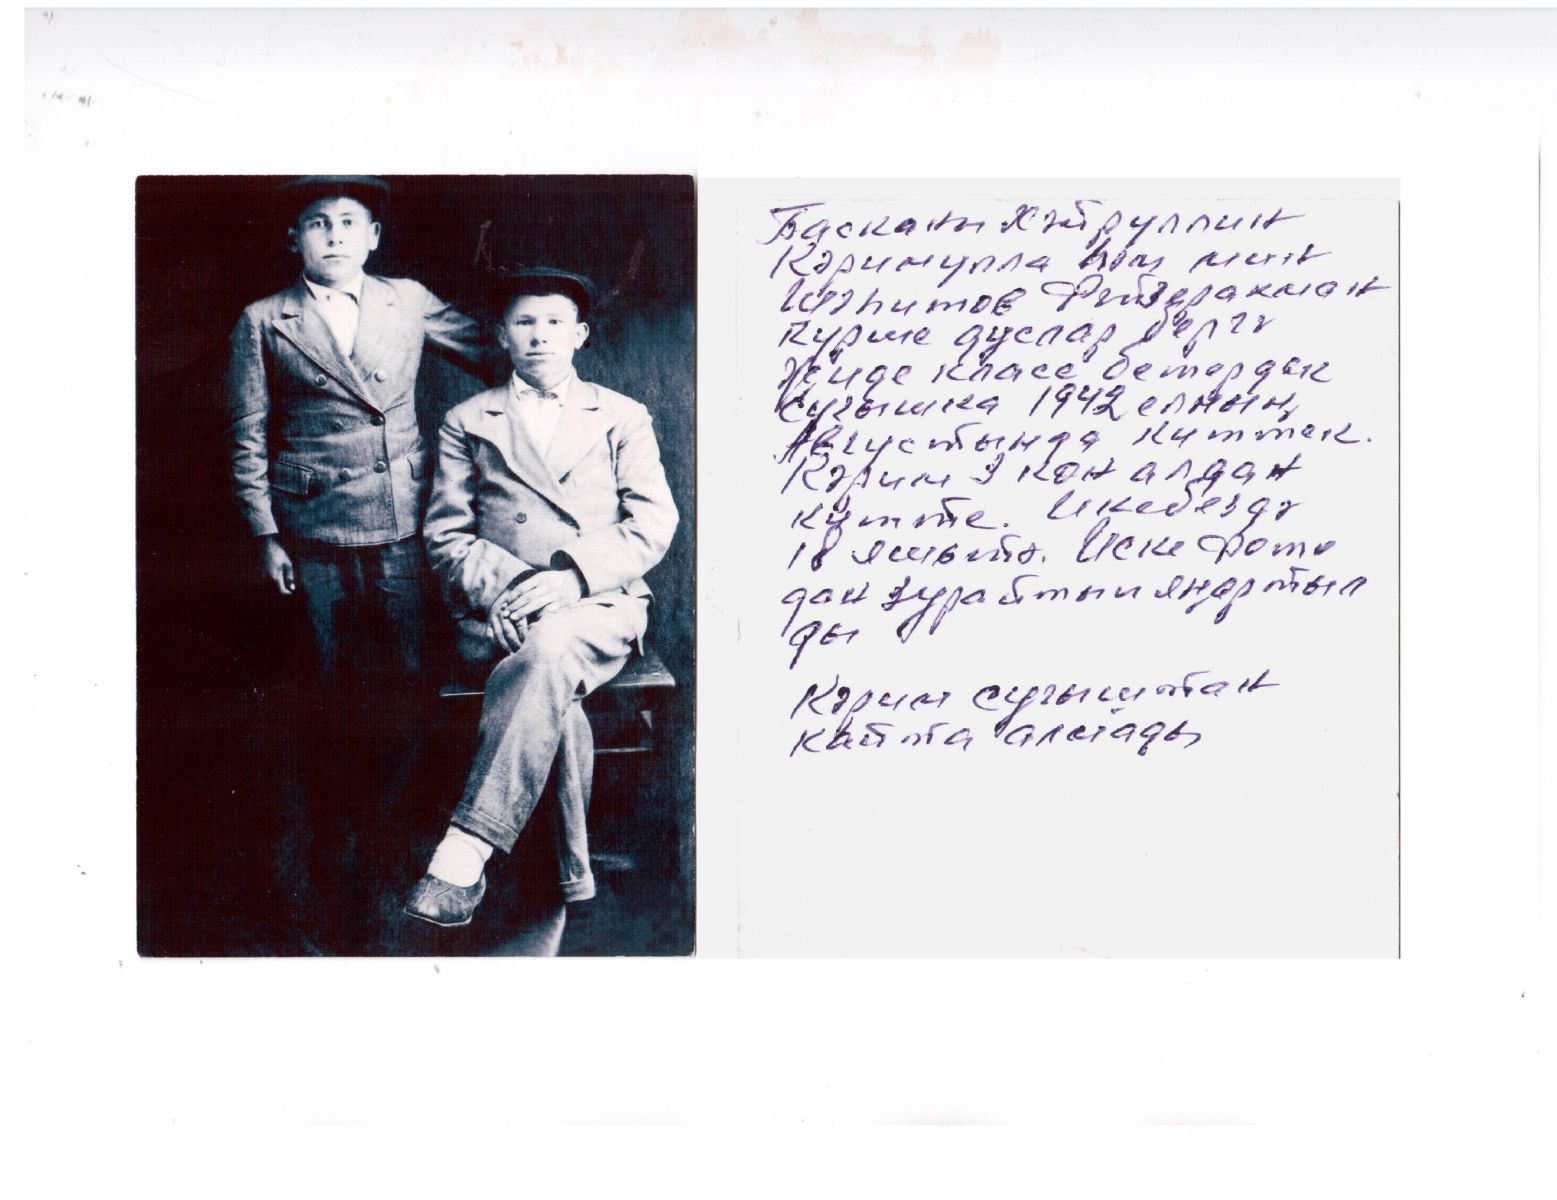 Басканы Хәйруллин
Кәримулла һәм мин
Шәһитов Фәйзерахман
күрше дуслар бергә
Җиде класс бетердек
сугышка 1942 елның
Августында киттек.
Кәрим 3 көн алдан
китте. Икебездә
18 яшьтә. Иске фото
дан зурайтып яңартыл
ды
Кәрим сугыштан
кайта алмады